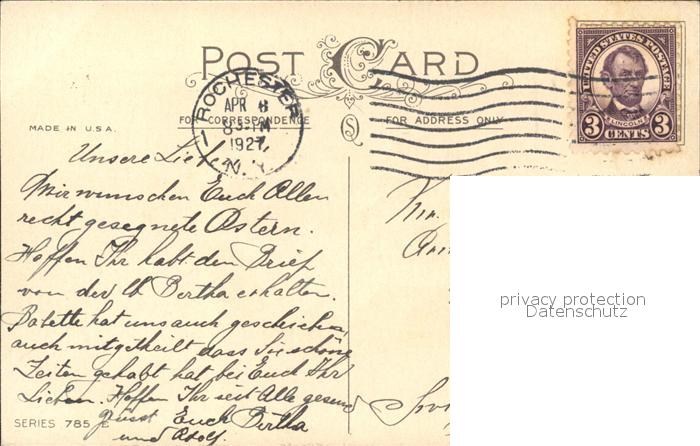 POST CARD
FOR CORRESPONDENCE
FOR ADDRESS ONLY
MADE IN U.S.A.
ROCHESTER
APR 8
1927
N.Y.
UNITED STATES POSTAGE
LINCOLN
3 CENTS 3
Unsere Lieb
Wir wunschen Euch Allen
recht gesegnete Ostern.
Hoffen Ihr habt den Brief
von der lb Bertha erhalten.
Babette hat uns auch geschrieben,
auch mitgetheilt dass Sie schöne
Zeiten gehabt hat bei Euch Ihr
Lieben. Hoffen Ihr seit Alle gesund
grüsst Euch Bertha
und Adolf.
SERIES 785 E
privacy protection
Datenschutz